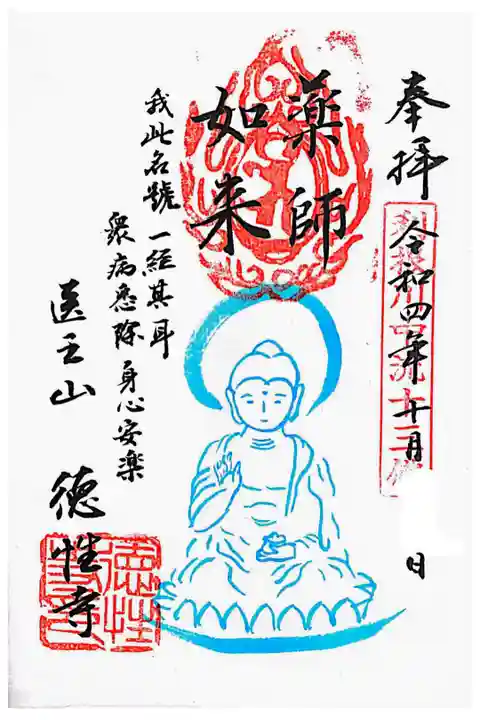 奉拝
令和四年十一月 日
薬師
如来
我此名號一経其耳
衆病悉除身心安楽
医王山
徳性寺
徳性